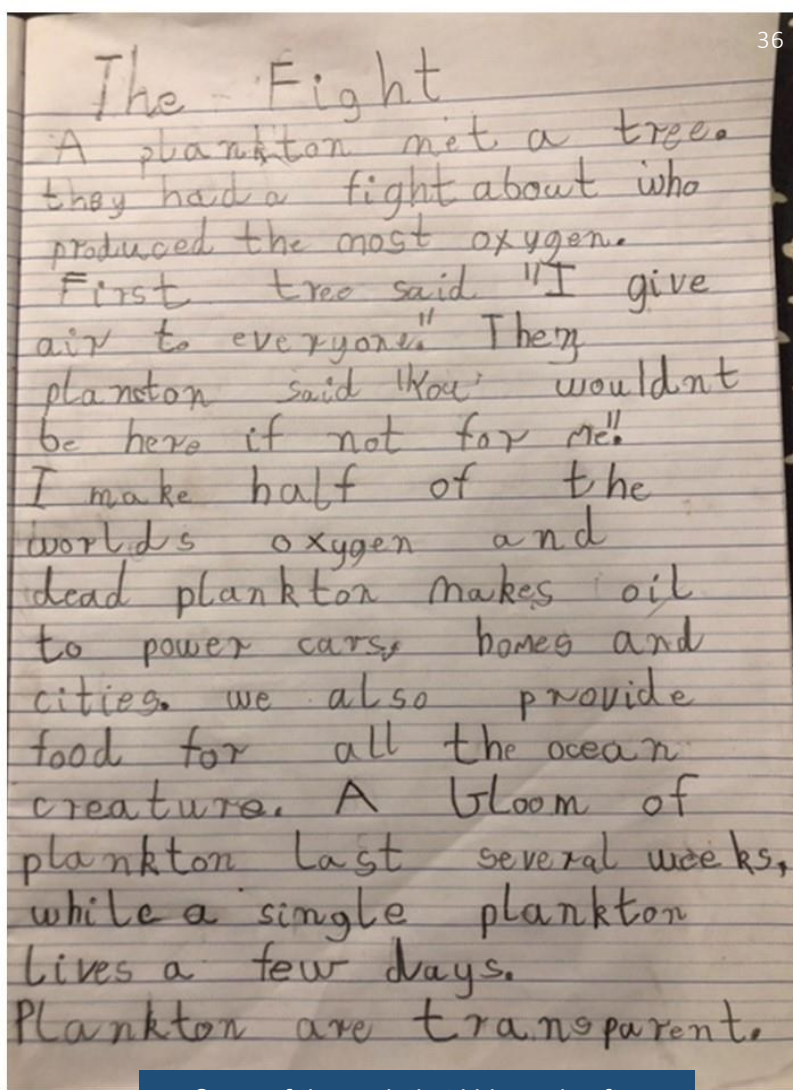 36
The Fight
A plankton met a tree.
they had a fight about who
produced the most oxygen.
First tree said "I give
air to everyone." Then
plancton said "You wouldnt
be here if not for me."
I make half of the
worlds oxygen and
dead plankton makes oil
to power cars, homes and
cities. we also provide
food for all the ocean
creature. A bloom of
plankton last several weeks,
while a single plankton
lives a few days.
Plankton are transparent.